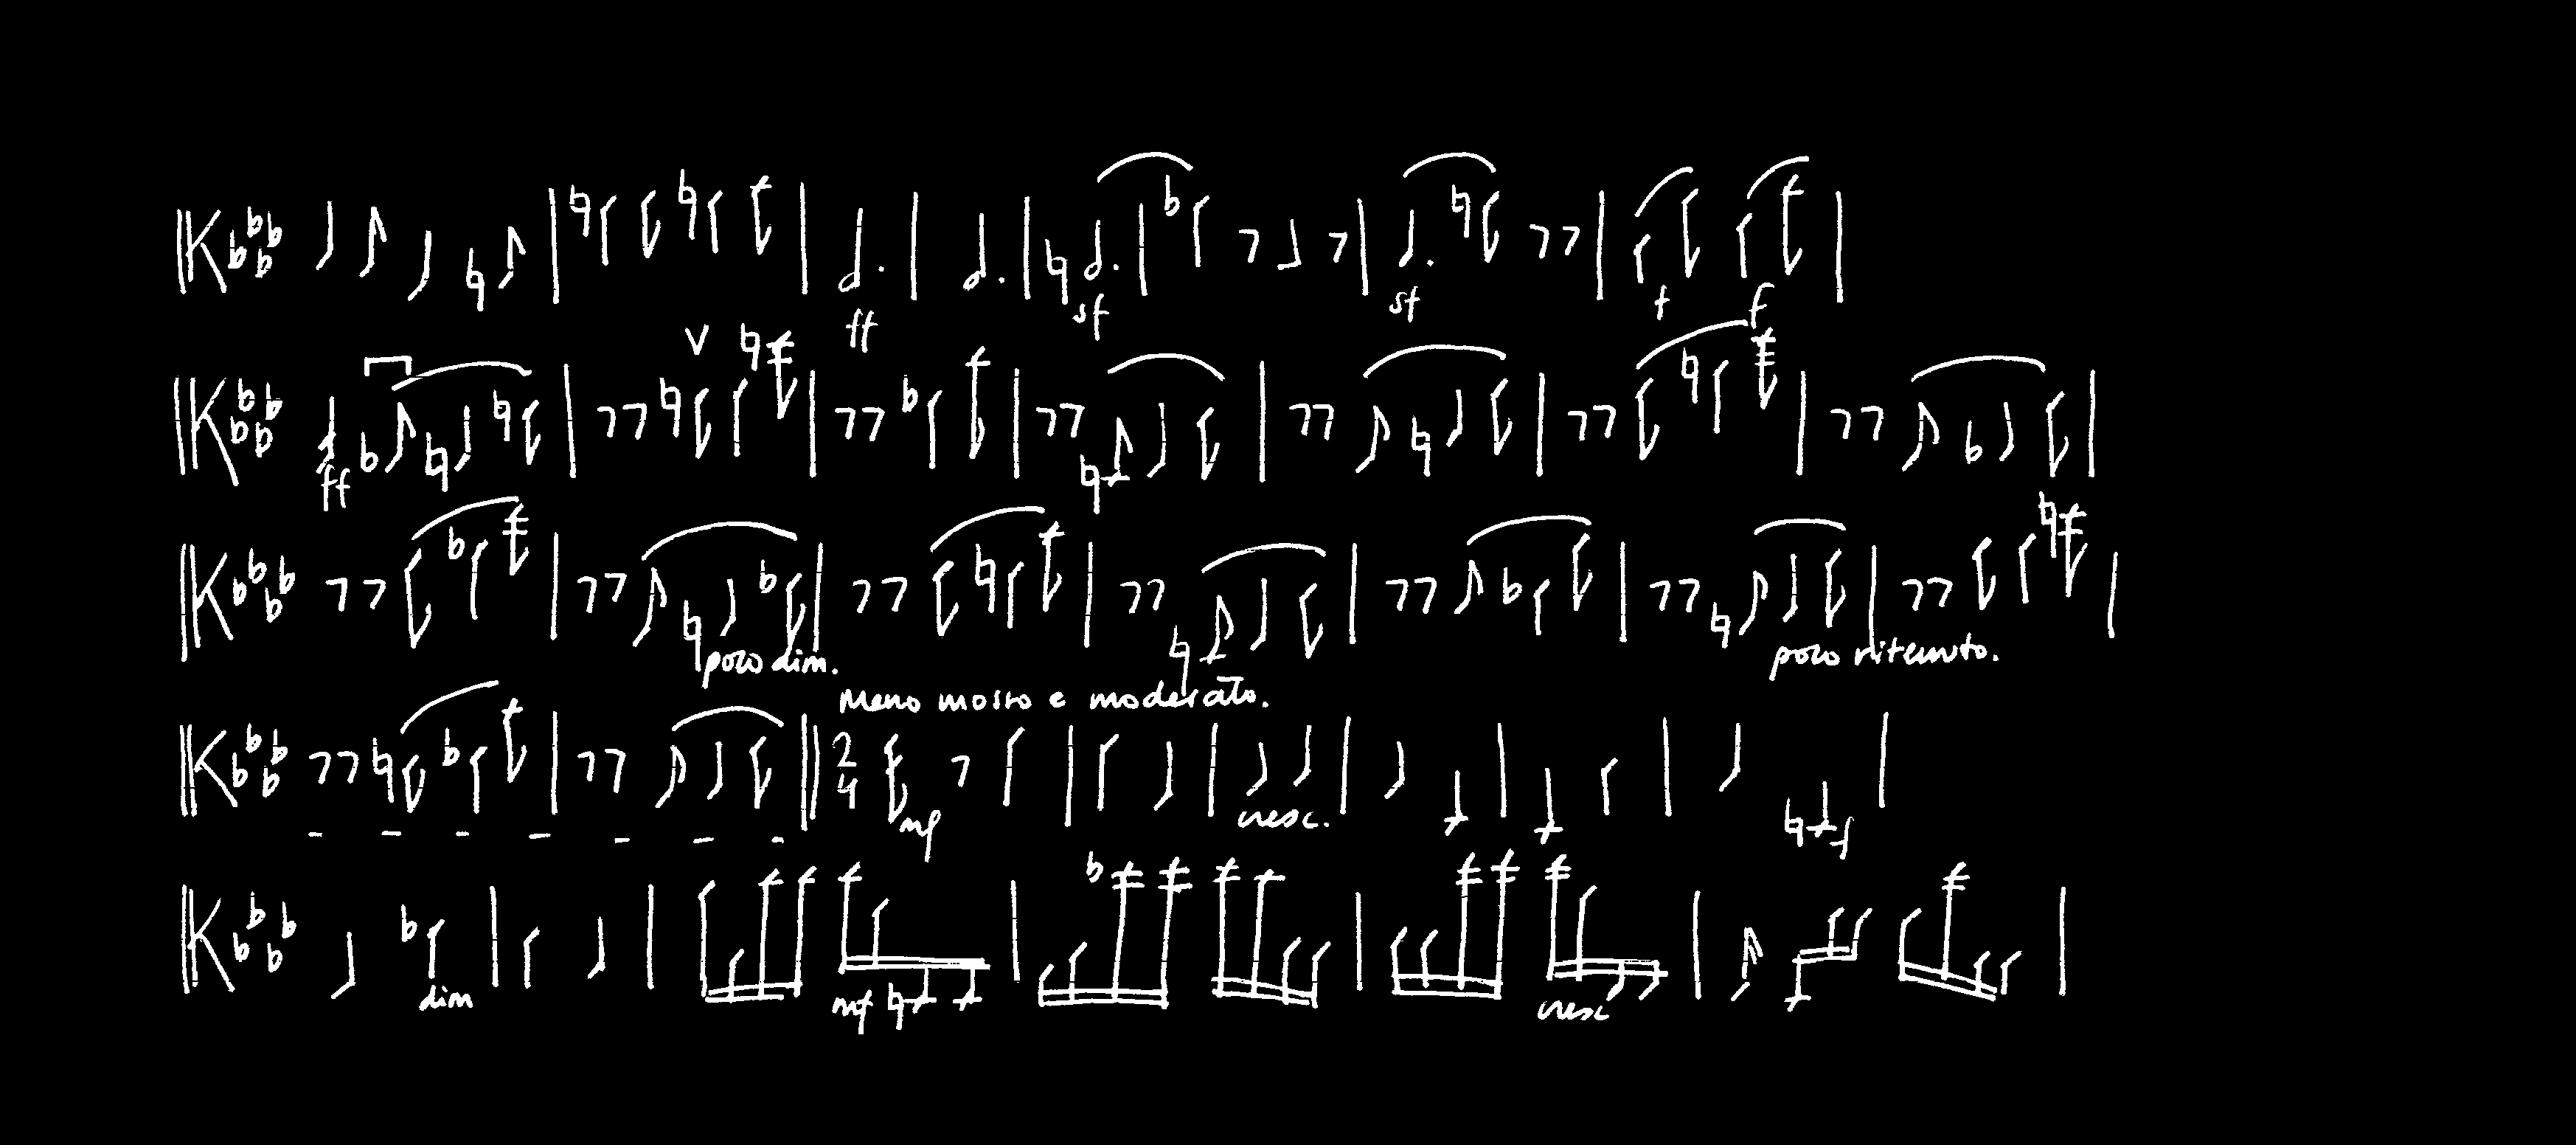 ff sf sf f f
V
ff
poco dim. poco ritenuto.
Meno mosso e moderato.
2 4 mf cresc. f
dim mf cresc